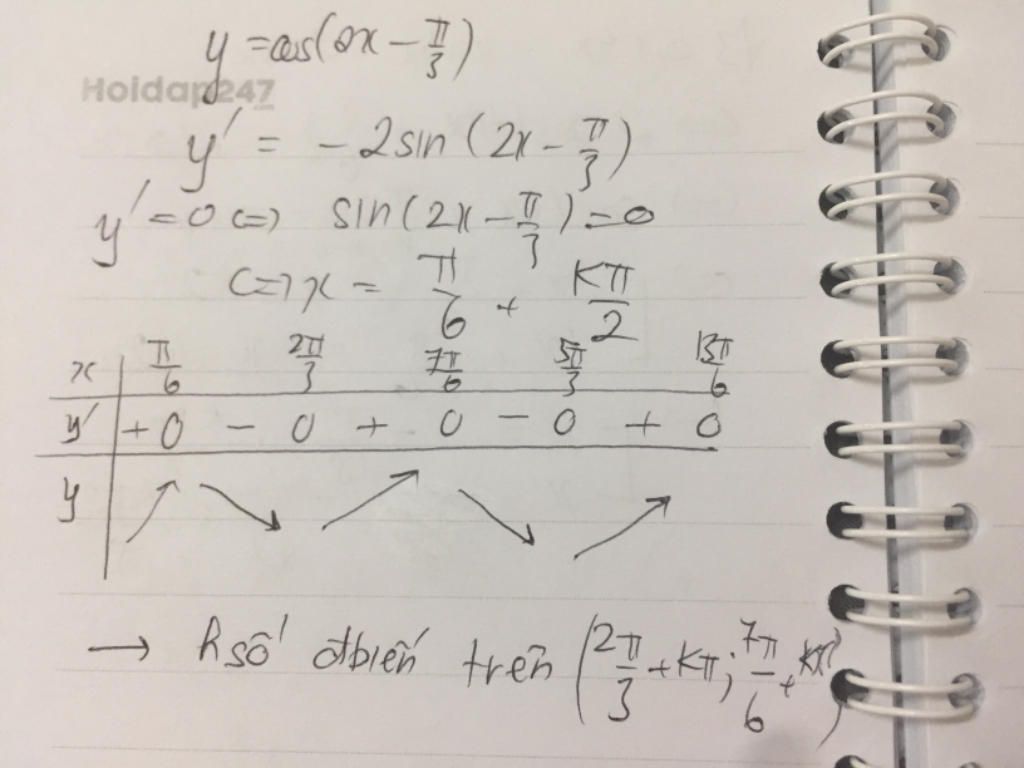 y = cos(2x - π/3)
Hoidap247
y' = - 2sin (2x - π/3)
y' = 0 <=> sin(2x - π/3) = 0
<=> x = π/6 + kπ/2
x π/6 2π/3 7π/6 5π/3 13π/6
y' + 0 - 0 + 0 - 0 + 0
y ↗ ↘ ↗ ↘ ↗
→ hsố đbiến trên (2π/3 + kπ; 7π/6 + kπ)